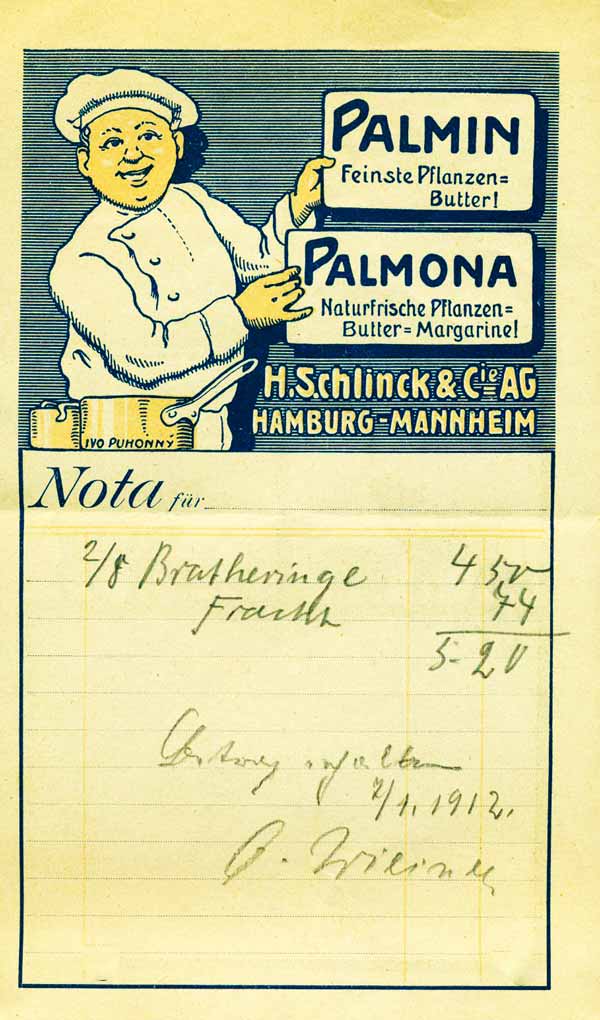 PALMIN
Feinste Pflanzen=
Butter!
PALMONA
Naturfrische Pflanzen=
Butter=Margarine!
H. Schlinck & Cie AG
HAMBURG-MANNHEIM
IVO PUHONNÝ
Nota für
2/8 Bratheringe 4 50
Fracht 74
5-20
Betrag erhalten
7/1. 1912.